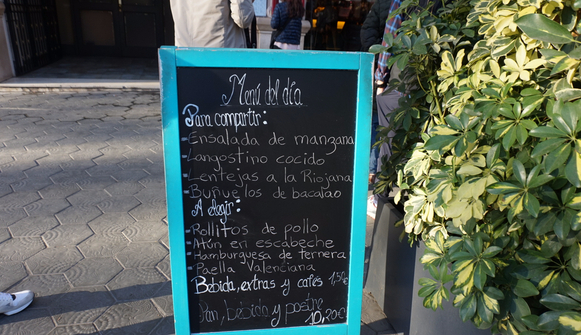 Menú del día
Para compartir:
- Ensalada de manzana
- Langostino cocido
- Lentejas a la Riojana
- Buñuelos de bacalao
A elegir:
- Rollitos de pollo
- Atún en escabeche
- Hamburguesa de ternera
- Paella Valenciana
Bebida, extras y cafés 1,50€
Pan, bebida y postre
10,20€